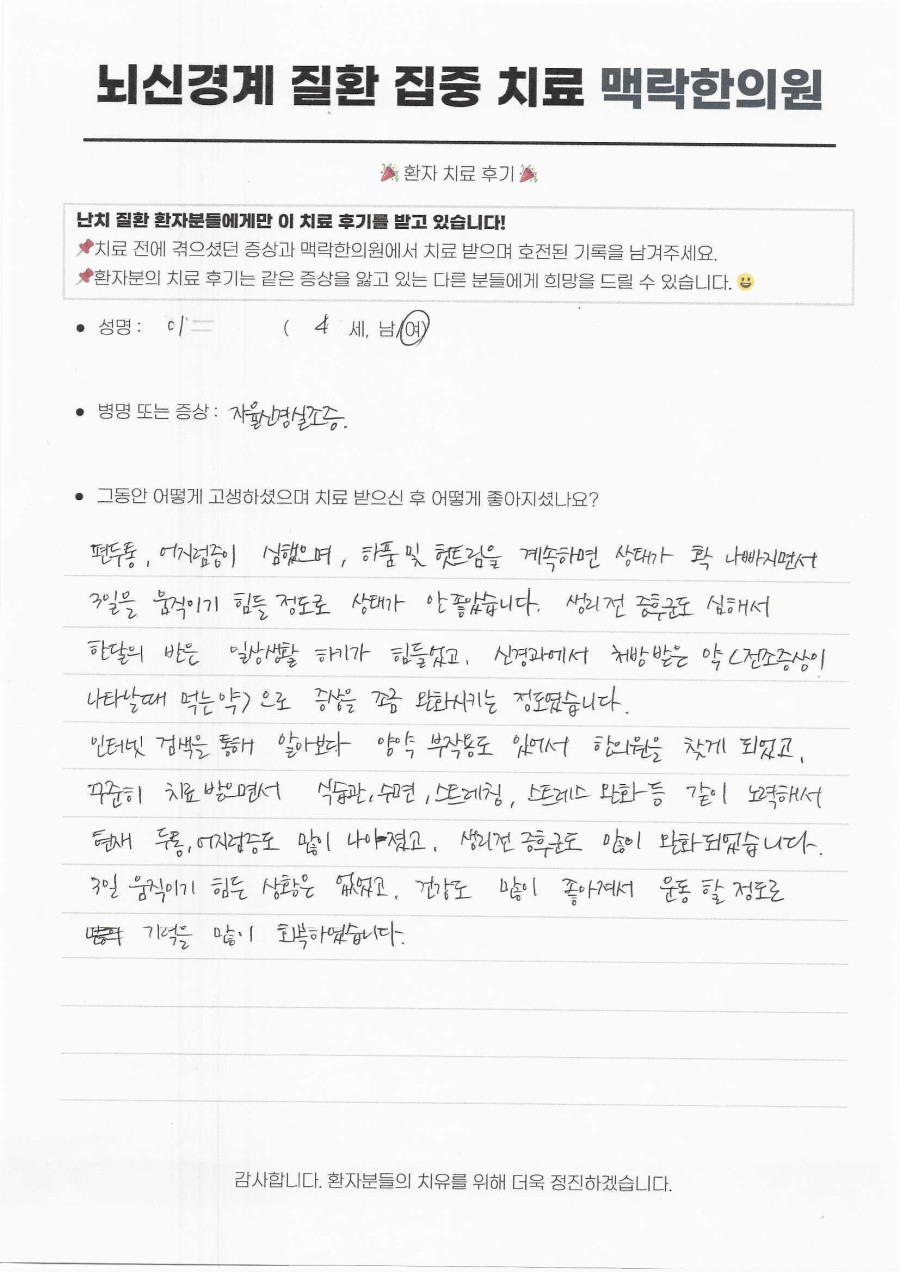 뇌신경계 질환 집중 치료 맥락한의원
🎉 환자 치료 후기 🎉
난치 질환 환자분들에게만 이 치료 후기를 받고 있습니다!
📌치료 전에 겪으셨던 증상과 맥락한의원에서 치료 받으며 호전된 기록을 남겨주세요.
📌환자분의 치료 후기는 같은 증상을 앓고 있는 다른 분들에게 희망을 드릴 수 있습니다. 😀
• 성명 : 이 ( 4 세, 남/여)
• 병명 또는 증상 : 자율신경실조증.
• 그동안 어떻게 고생하셨으며 치료 받으신 후 어떻게 좋아지셨나요?
편두통, 어지럼증이 심했으며, 하품 및 헛트림을 계속하면 상태가 확 나빠지면서
3일을 움직이기 힘들 정도로 상태가 안 좋았습니다. 생리 전 증후군도 심해서
한달의 반은 일상생활 하기가 힘들었고, 신경과에서 처방 받은 약 <전조증상이
나타날때 먹는 약>으로 증상을 조금 완화시키는 정도였습니다.
인터넷 검색을 통해 알아보다 양약 부작용도 있어서 한의원을 찾게 되었고,
꾸준히 치료 받으면서 식습관, 수면, 스트레칭, 스트레스 완화 등 같이 노력해서
현재 두통, 어지럼증도 많이 나아졌고, 생리 전 증후군도 많이 완화 되었습니다.
3일 움직이기 힘든 상황은 없었고, 건강도 많이 좋아져서 운동 할 정도로
기력을 많이 회복하였습니다.
감사합니다. 환자분들의 치유를 위해 더욱 정진하겠습니다.